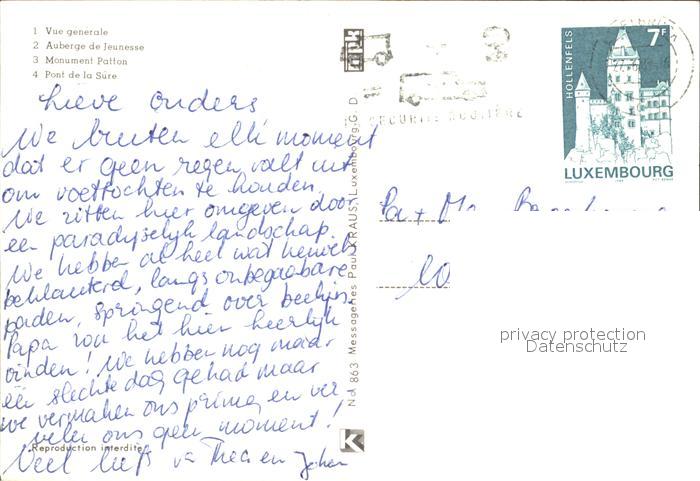 1 Vue generale
2 Auberge de Jeunesse
3 Monument Patton
4 Pont de la Sûre
Lieve ouders
We buiten elk moment
dat er geen regen valt uit
om voettochten te houden.
We zitten hier omgeven door
een paradijselijk landschap.
We hebben al heel wat heuvels
beklauterd, langs onbegaanbare
paden, springend over beekjes.
Papa zou het hier heerlijk
vinden! We hebben nog maar
één slechte dag gehad maar
we vermaken ons prima en ver-
velen ons geen moment!
Veel liefs van Thea en Johan
Reproduction interdite
No. 863 Messageries Paul KRAUS, Luxembourg G. D.
K
SECURITE ROUTIERE
HOLLENFELS
7F
LUXEMBOURG
Pa + Ma
privacy protection
Datenschutz